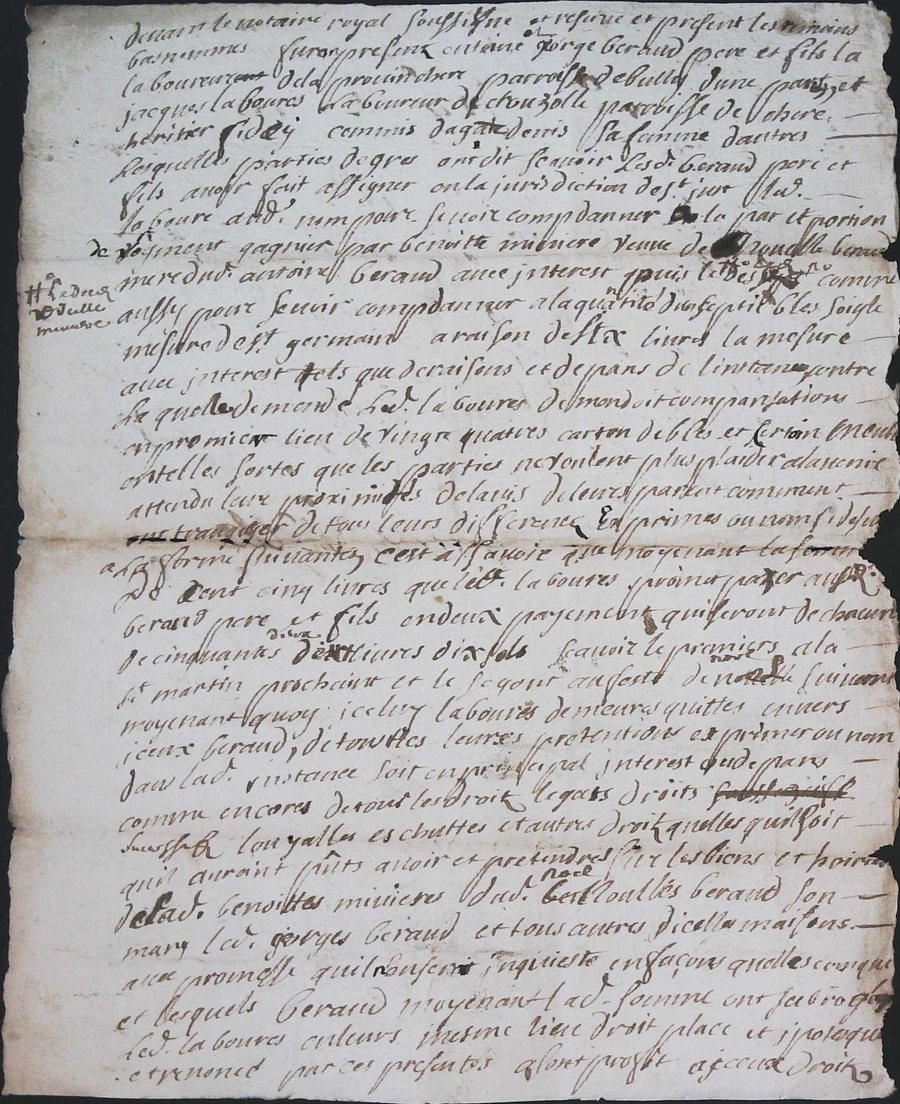 devant le notaire royal soussigne et reserve et present les temoins
bas nommes furon present entoine et gorge beraud pere et fils la
boureurs de la parroisse de bully dune part, et
jacques laboures laboureur de parroisse de
heritier fidey commis dagate denis sa femme dautres
Lesquelles parties de gres ont dit scavoir lesd. beraud pere et
fils avoir fait assigner en la jurisdiction de st just led.
laboure aud. nom pour se voir compdanner a la par et portion
de gagnier par benoitte miniere veuve de beraud
mere dud. antoine beraud avec jnterest puis le comme
# Ledeces
de ladite
miniere
aussy pour se voir compdanner a la quantité bles soigle
mesure de st. germain a raison de six livres la mesure
avec jnterest tels que de raisons et depans de linstance contre
La quelle demende Led. laboures demandoit compansations
en premier lieu de vingt quatres carton de bles et
en telles sortes que les parties ne voulent plus plaider a lavenir
attendu leur proximités de lavis de leurs parent commun
de tous leurs difference exprimes ou non si dessu
a La forme suivantes, cest assavoir que moyenant la somme
De Cent cinq livres que led. laboures promet payer ausd.
beraud pere et fils en deux payement qui seront de chacun
de cinquantes deux livres dix sols scavoir le premiers a la
st martin prochaine et le segont au feste de noel suivant
moyenant quoy jceluy laboures demeures quittes envers
jceux beraud, de touttes leurs pretentions exprimer ou nom
dans lad. instance soit en principal jnterest ou depans
comme encores de tous les droit legats droits
eschuttes et autres droit quelles quil soit
quil auraint puts avoir et pretendres sur les biens et hoiries
de lad. benoittes minieres dud. noel beraud son
mary led. gorges beraud et tous autres dicella maisons.
avec promesse quil jnquieste en façons quelles conque
et lesquels beraud moyenant lad. somme ont
Led. laboures en leurs mesme lieu droit place et jpoteque
et renonce par ces presentes a son proffit a jceux droit